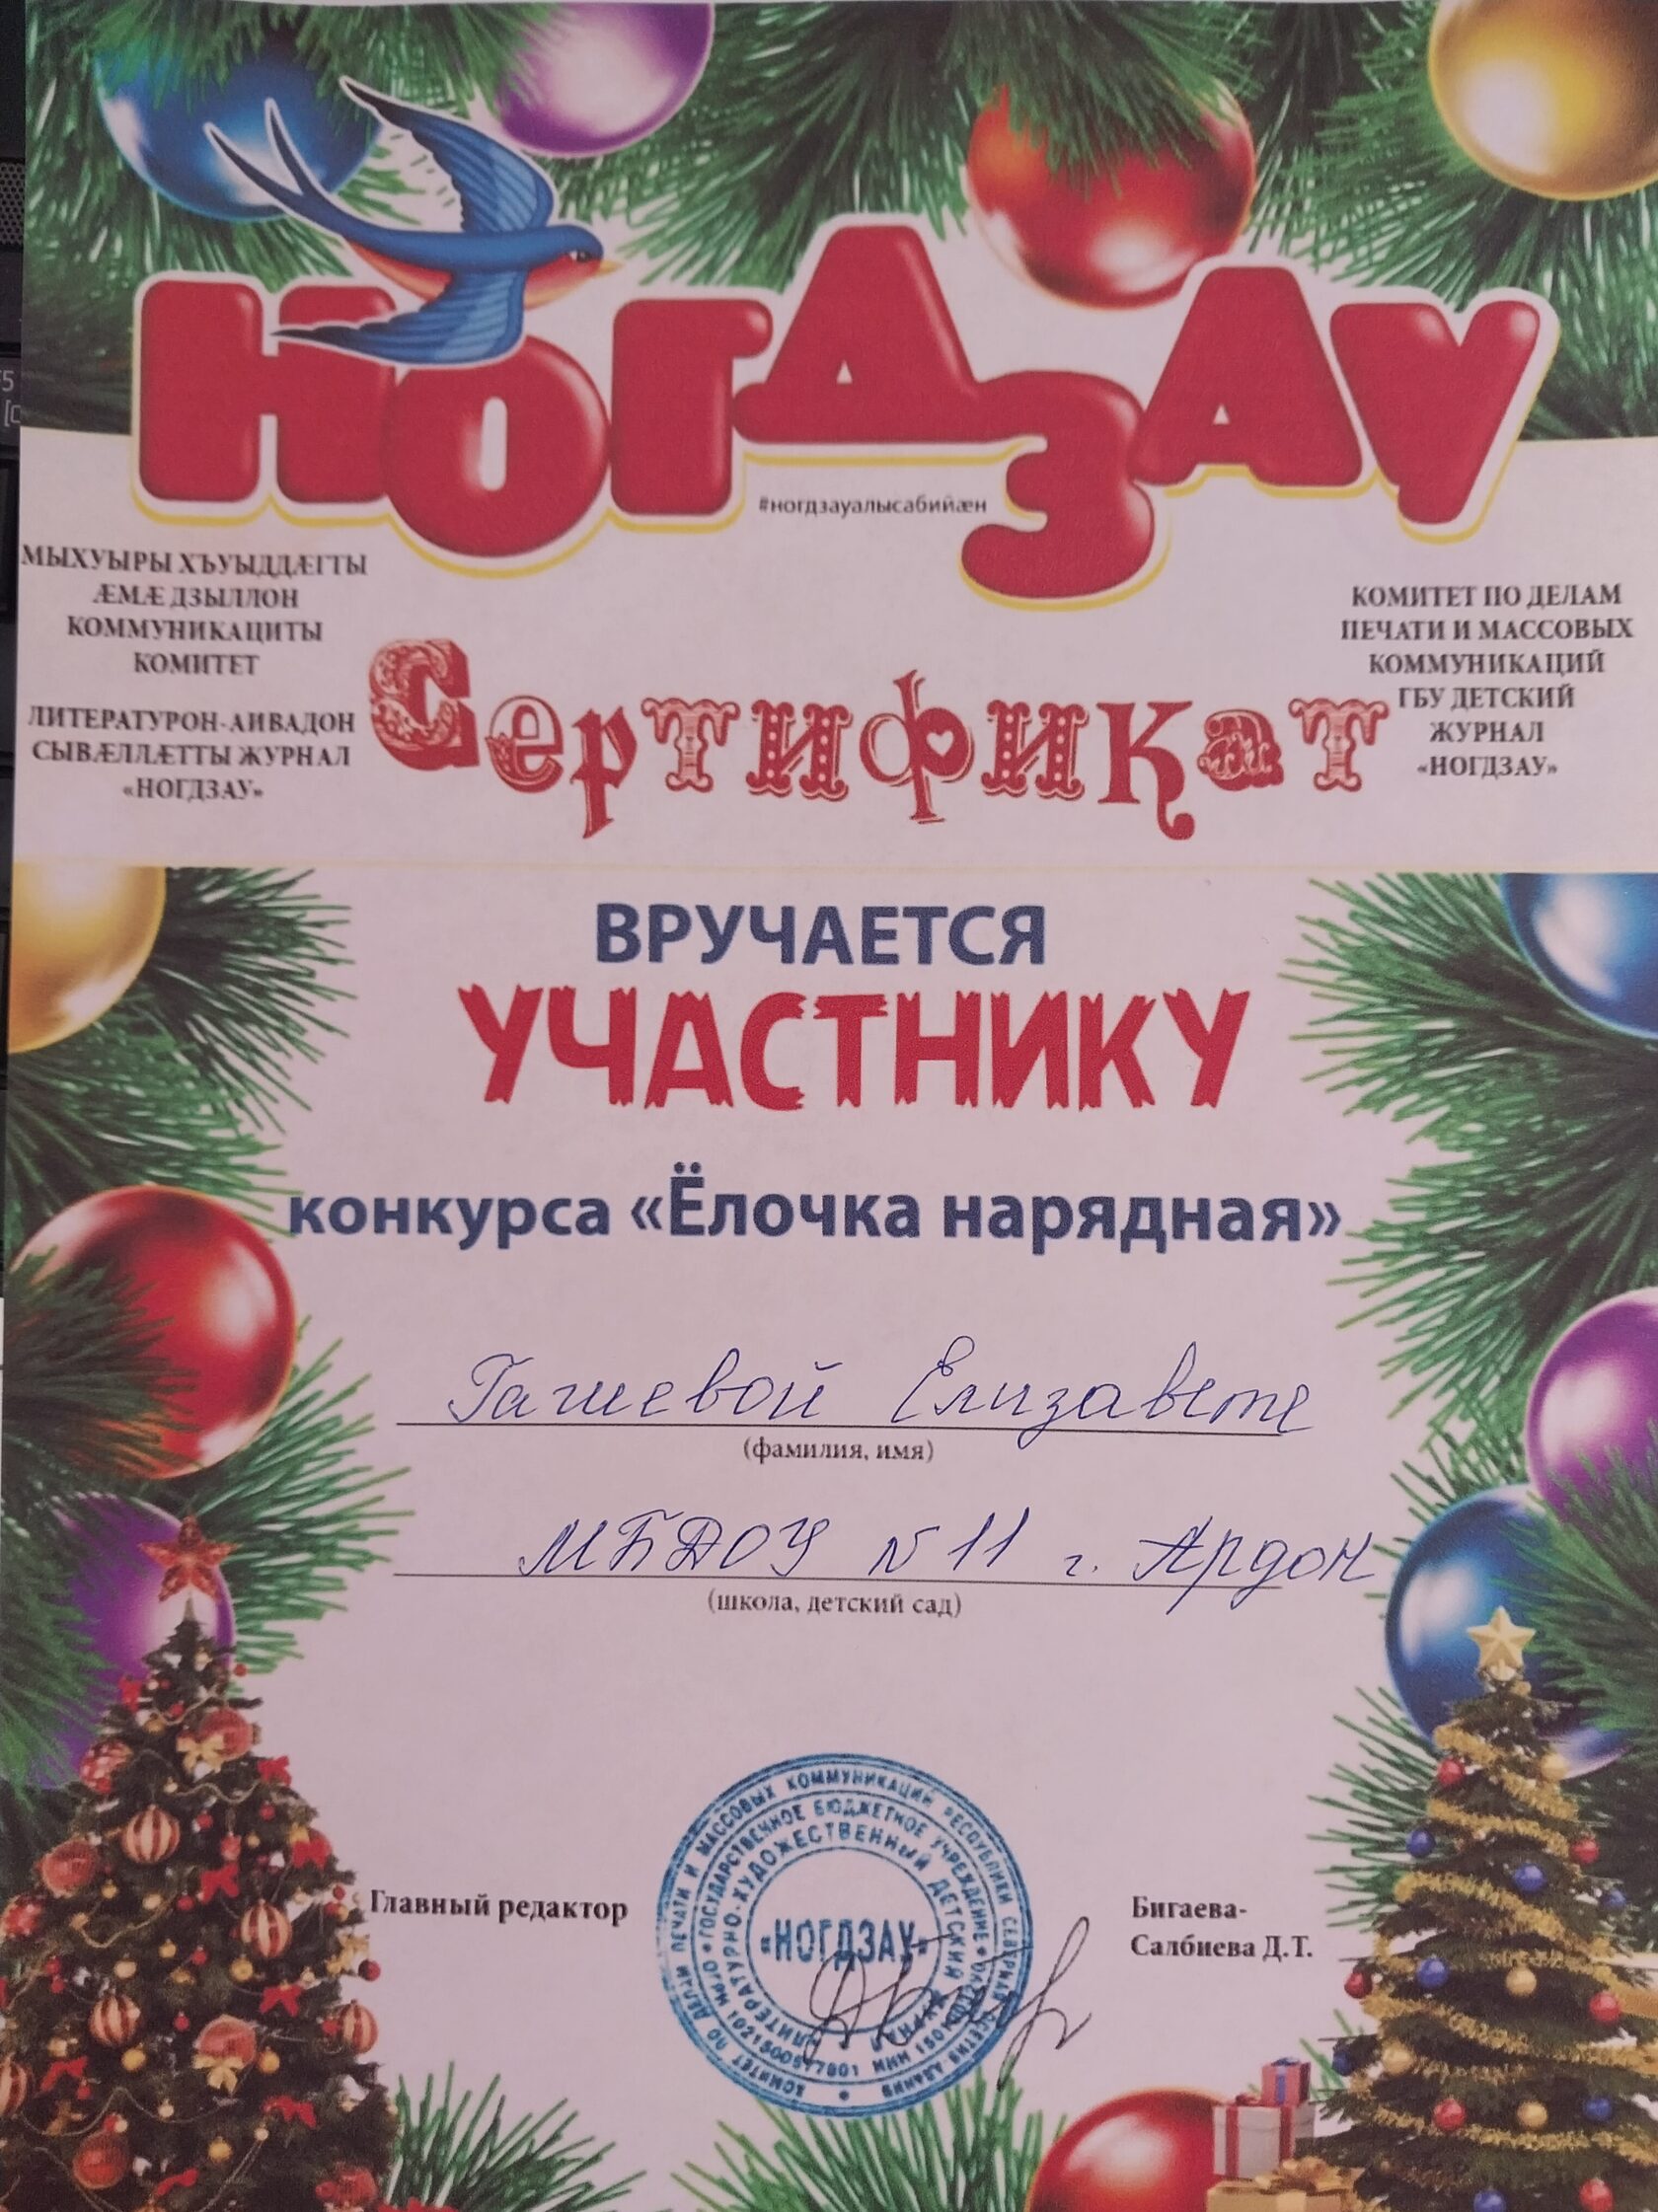 НОГДЗАУ
#ногдзауалысабийæн
МЫХУЫРЫ ХЪУЫДДÆГТЫ
ÆМÆ ДЗЫЛЛОН
КОММУНИКАЦИТЫ
КОМИТЕТ
ЛИТЕРАТУРОН-АИВАДОН
СЫВÆЛЛÆТТЫ ЖУРНАЛ
«НОГДЗАУ»
КОМИТЕТ ПО ДЕЛАМ
ПЕЧАТИ И МАССОВЫХ
КОММУНИКАЦИЙ
ГБУ ДЕТСКИЙ
ЖУРНАЛ
«НОГДЗАУ»
Сертификат
ВРУЧАЕТСЯ
УЧАСТНИКУ
конкурса «Ёлочка нарядная»
Гагиевой Елизавете
(фамилия, имя)
МБДОУ №11 г. Ардон
(школа, детский сад)
Главный редактор
Бигаева-
Салбиева Д.Т.
КОМИТЕТ ПО ДЕЛАМ ПЕЧАТИ И МАССОВЫХ КОММУНИКАЦИЙ РЕСПУБЛИКИ СЕВЕРНАЯ ОСЕТИЯ-АЛАНИЯ
ГОСУДАРСТВЕННОЕ БЮДЖЕТНОЕ УЧРЕЖДЕНИЕ
ЛИТЕРАТУРНО-ХУДОЖЕСТВЕННЫЙ ДЕТСКИЙ ЖУРНАЛ
«НОГДЗАУ»